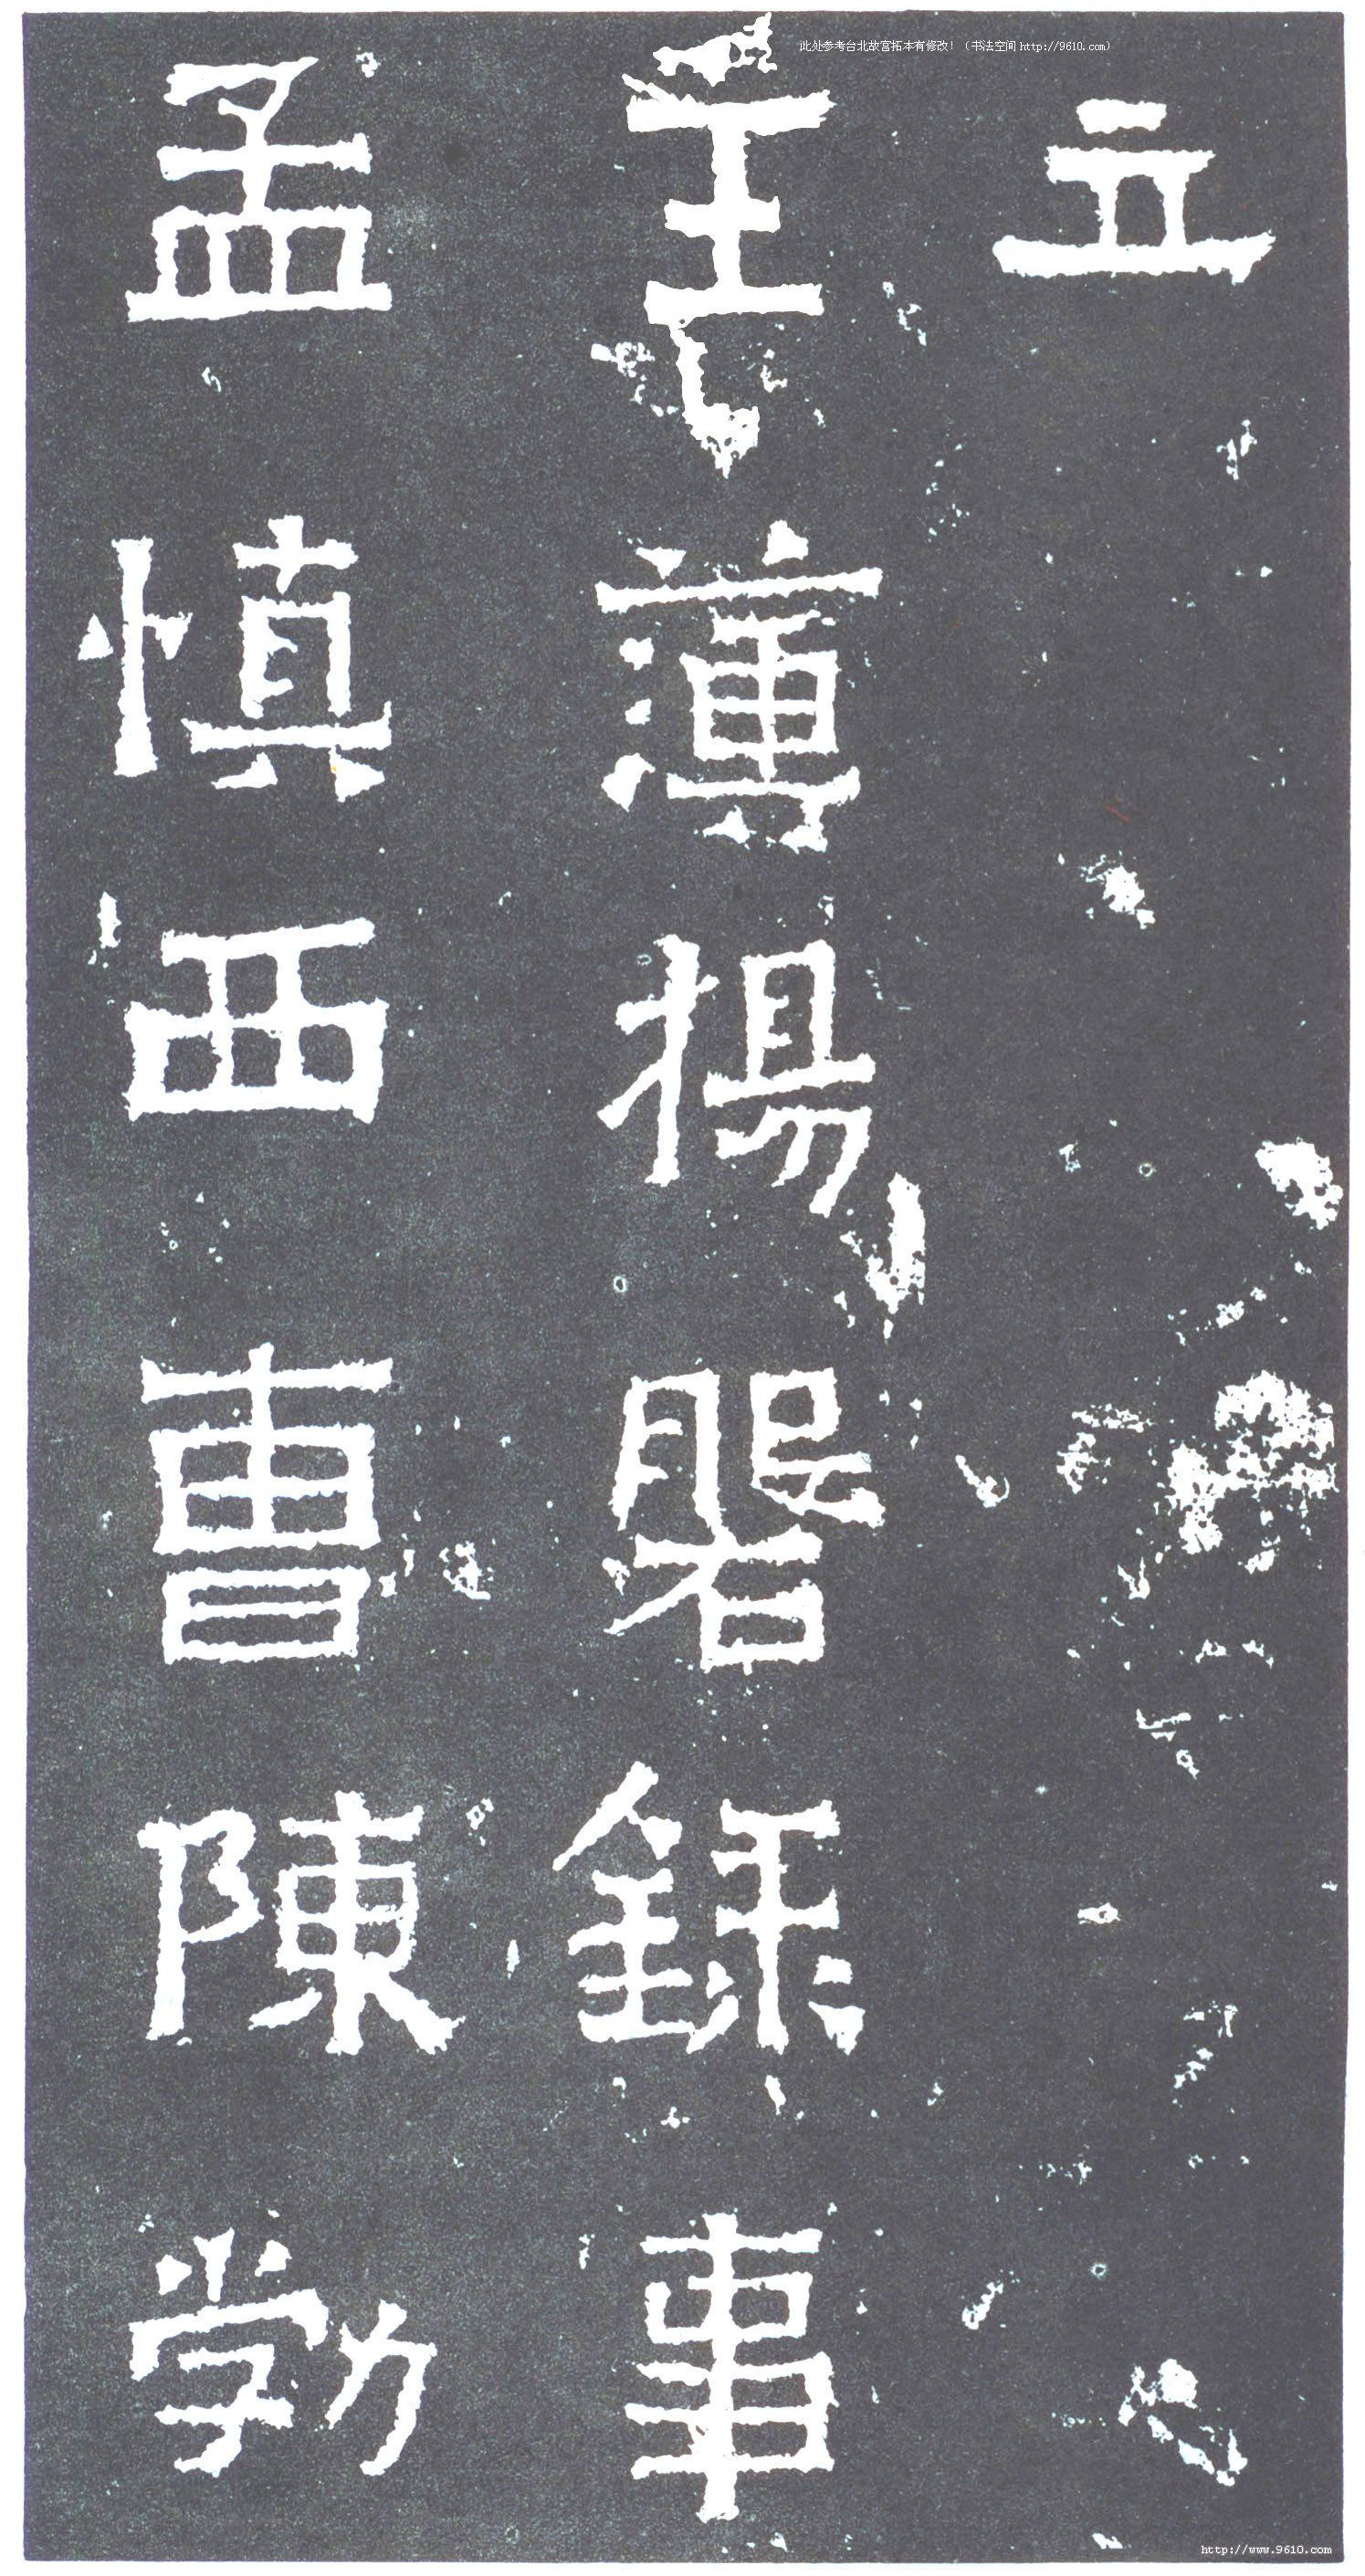 此处参考台北故宫拓本有修改！（书法空间 http://9610.com）
立
主薄楊磐錄事
孟慎西曹陳勃
http://www.9610.com